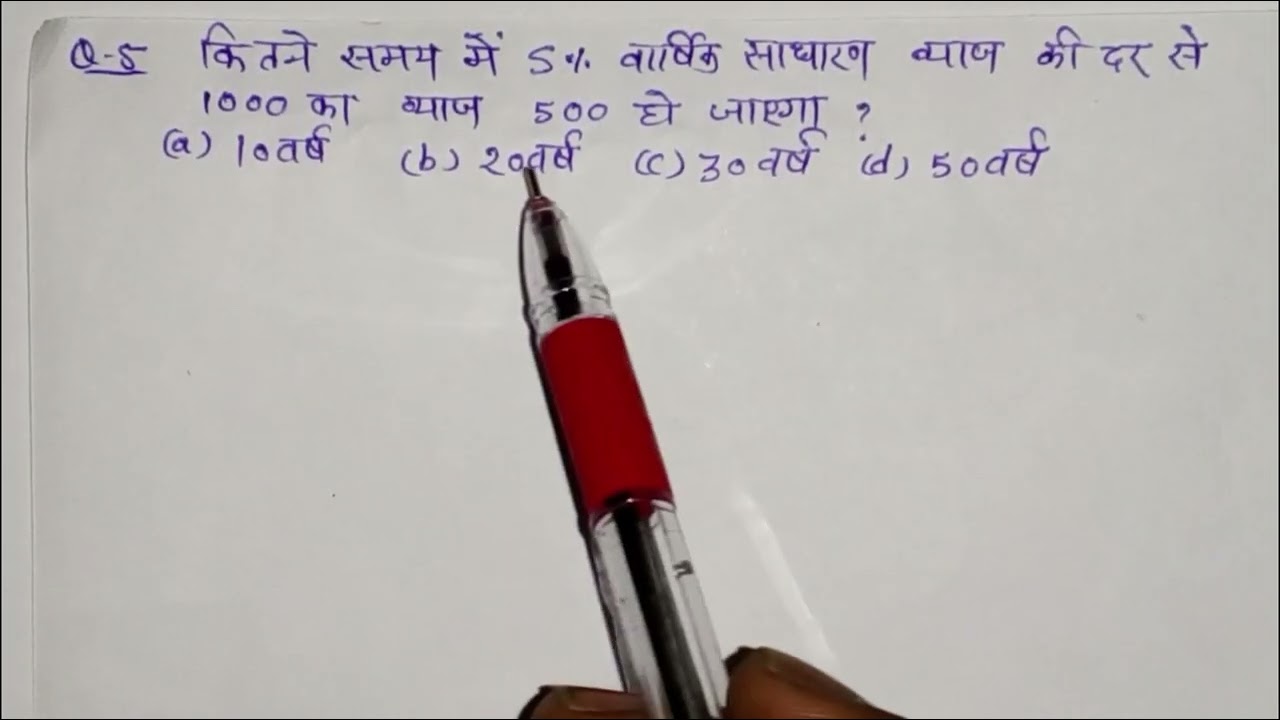 Q-5 कितने समय में 5% वार्षिक साधारण ब्याज की दर से
1000 का ब्याज 500 हो जाएगा ?
(a) 10 वर्ष (b) 20 वर्ष (c) 30 वर्ष (d) 50 वर्ष